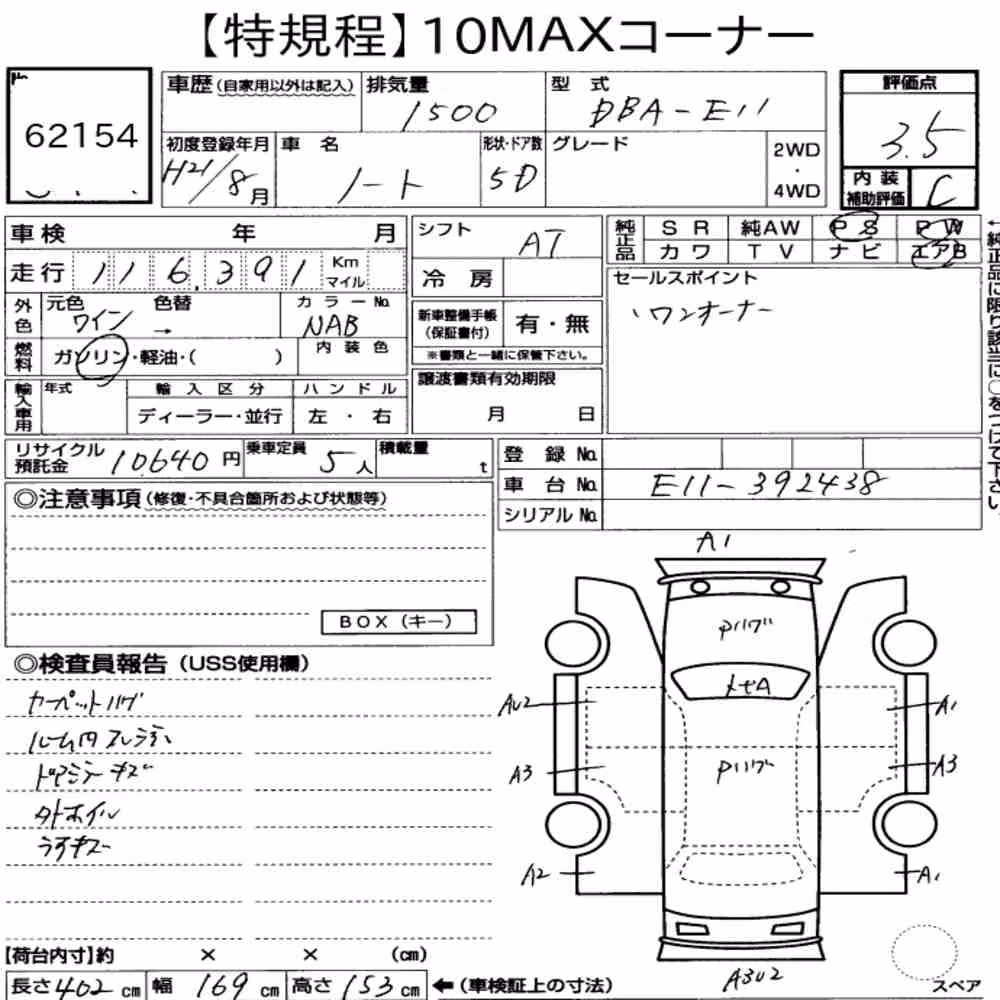 【特規程】10MAXコーナー
62154
車歴(自家用以外は記入) 排気量 1500 型式 DBA-E11 評価点 3.5
初度登録年月 H21/8月 車名 ノート 形状・ドア数 5D グレード 2WD・4WD
内装補助評価 C
車検 年 月 シフト AT 純正品 SR 純AW PS PW
走行 116,391 Km マイル 冷房 カワ TV ナビ エアB
外色 元色 ワイン → 色替 カラーNo. NAB
新車整備手帳(保証書付) 有・無
※書類と一緒に保管下さい。
セールスポイント
、ワンオーナー
←純正品に限り該当に○をつけて下さい。
燃料 ガソリン・軽油・( ) 内装色
輸入車用 年式 輸入区分 ハンドル
ディーラー・並行 左・右
譲渡書類有効期限
月 日
リサイクル預託金 10640円 乗車定員 5人 積載量 t
登録No.
車台No. E11-392438
シリアルNo.
◎注意事項(修復・不具合箇所および状態等)
BOX(キー)
◎検査員報告(USS使用欄)
カーペットハゲ
ドアミラーキズ
タホイル
うすキズ
A1
AU2
A1
A3
A3
A2
A1
A3U2
スペア
【荷台内寸】約 × × (cm)
長さ402cm 幅169cm 高さ153cm ←(車検証上の寸法)